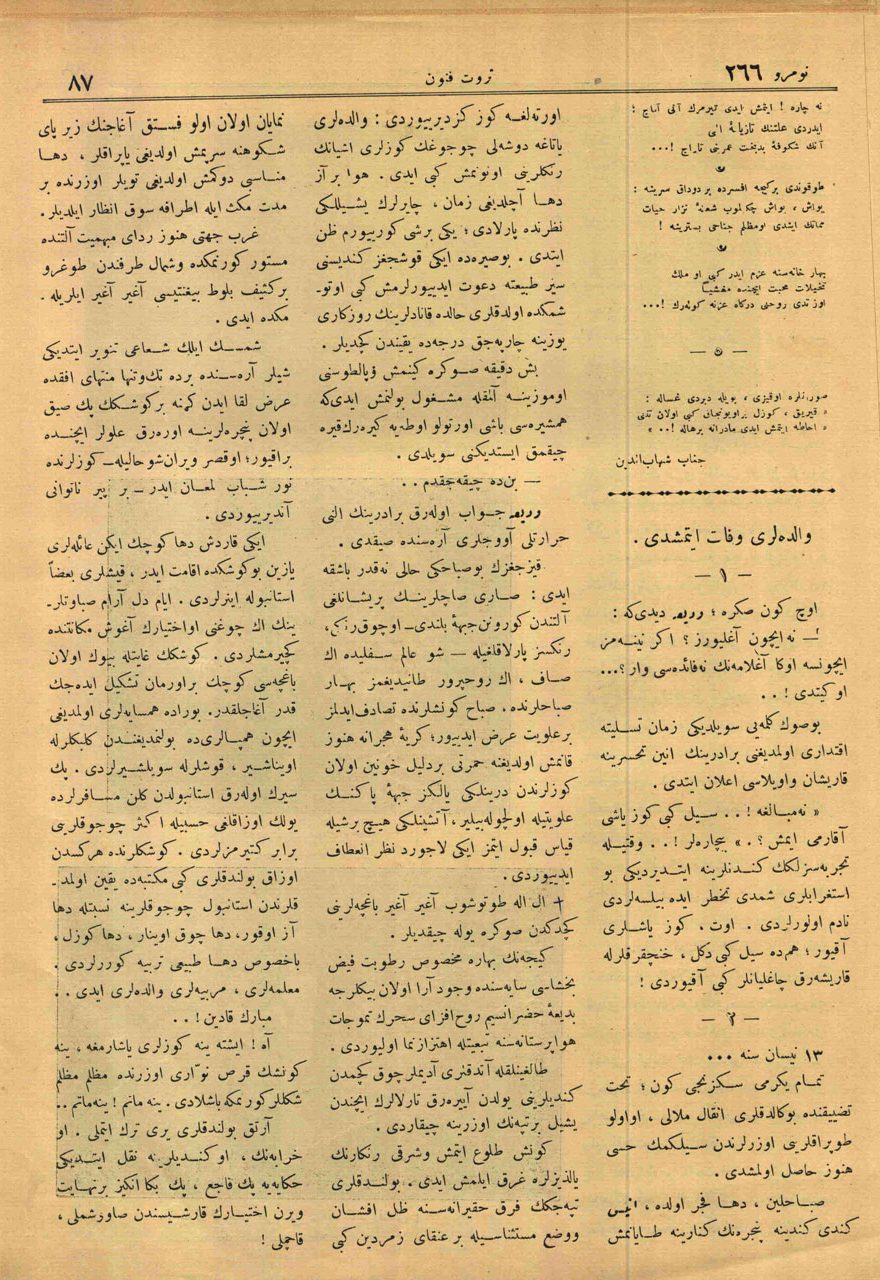 نومرو ٢٦٦
ثروت فنون
٨٧
نه چاره ! ايتمش ايدى تيرمرك آنى آماج ؛
ايدردى علتنك تازيانهٔ المى
آنك شكوفهٔ بدبخت عمرينى تاراج !...
طوقوندى بركيجه افسرده بر دوداق سرينه ؛
يواش ، يواش چكلوب شعلهٔ نزار حيات
ممانك ايتدى او مظلم جناحى بسترينه !
بهار خانه‌سنه عزم ايدر كبى او ملك
تخيلات محبت ايچنده مغشيا
اوزاتدى روحنى دركاه عزته كوله‌رك !...
— ٥ —
صورتلره اوقيزى ، بويله ديردى غساله :
« قيريق ، كوزل براويونجاق كبى اولان تنى
« احاطه ايتمش ايدى مادرانه برهاله !.. »
جناب شهاب‌الدين
والده‌لرى وفات ايتمشدى .
— ١ —
اوچ كون صكره ؛ وريه ديدى‌كه :
— نه ايچون آغليورز ؟ اكر نينه‌مز
ايچونسه اوكا آغلامه‌نك نه‌فائده‌سى وار ؟...
او كيتدى ! ..
بوصوك كلمه‌يى سويلديكى زمان تسليته
اقتدارى اولمديغنى برادرينك انين تحسرينه
قاريشان واويلاسى اعلان ايتدى .
« نه‌مبالغه ! . . سيل كبى كوز ياشى
آقارمى ايمش ؟ . » بيچاره‌لر ! . . وقتيله
تجربه‌سزلكك كنديلرينه ايتديرديكى بو
استغرابلرى شمدى تخطر ايده بيلسه‌لردى
نادم اولورلردى . اوت . كوز ياشلرى
آقيور ؛ هم‌ده سيل كبى دكل ، خنچقرقلرله
قاريشه‌رق چاغليانلر كبى آقيوردى !
— ٢ —
١٣ نيسان سنه ...
تمام يكرمى سكزنجى كون ؛ تحت
تضييقنده بوكالدقلرى اثقال ملالى ، او اولو
طوپراقلرينى اوزرلرندن سيلكمك حسى
هنوز حاصل اولمشدى .
صباحلين ، دها فجر اولده ، انيس
كندى كندينه پنجره‌نك كنارينه طايانمش
اورته‌لغه كوز كزديرييوردى : والده‌لرى
ياتاغه دوشه‌لى چوجوغك كوزلرى اشيانك
رنكلرينى اونوتمش كبى ايدى . هوا بر آز
دها آچلديغى زمان ، چايرلرك يشيللكى
نظرنده پارلادى ؛ يكى برشى كورييورم ظن
ايتدى . بوصيره‌ده ايكى قوشجغز كنديسنى
سير طبيعته دعوت ايدييورلرمش كبى اوتو-
شمكده اولدقلرى حالده قانادلرينك روزكارى
يوزينه چارپه‌جق درجه‌ده يقيندن كچديلر .
بش دقيقه صوكره كيتمش و پالطوسنى
اوموزينه آلمقله مشغول بولنمش ايدى‌كه
همشيره‌سى باشى اورتولو اوطه‌يه كيره‌رك قيره
چيقمق ايستديكنى سويلدى .
— بن‌ده چيقه‌جقدم . .
وريه جواب اوله‌رق برادرينك النى
حرارتلى آووجلرى آره‌سنده صيقدى .
قيزجغزك بوصباحكى حالى نه‌قدر باشقه
ايدى : صارى صاچلرينك پريشانلغى
آلتندن كورونن جبههٔ بلندى — اوچوق رنكى ،
رنكسز پارلاقلغيله — شو عالم سفليده اك
صاف ، اك روحپرور طانيديغمز بهار
صباحلرنده ، صباح كونشلرنده تصادف ايدلمز
برعلويت عرض ايدييور ؛ كريهٔ هجرانه هنوز
قانمش اولديغنه حمرتى بردليل خونين اولان
كوزلرندن درينلكى يالكز جبههٔ پاكنك
علويتيله اولچوله‌بيلير ، آتشينلكى هيچ برشيله
قياس قبول ايتمز ايكى لاجورد نظر انعطاف
ايدييوردى .
ال اله طوتوشوب آغير آغير باغچه‌لرينى
كچدكدن صوكره يوله چيقديلر .
كيجه‌نك بهاره مخصوص رطوبت فيض
بخشاسى سايه‌سنده وجود آرا اولان بيكلرجه
بديعهٔ حضرا نسيم روح‌افزاى سحرك تموجات
هواپرستانه‌سنه تبعيتله اهتزازنما اوليوردى .
طالغينلقله آتدقلرى آديملر چوق كچمدن
كنديلرينى يولدن آييره‌رق تارلالرك ايچندن
يشيل برتپه‌نك اوزرينه چيقاردى .
كونش طلوع ايتمش و شرقى رنكارنك
يالديزلره غرق ايلمش ايدى . بولندقلرى
تپه‌جكك فرق حقيرانه‌سنه ظل افشان
ووضع مستثناسيله بر عنقاى زمردين كبى
نمايان اولان اولو فستق آغاجنك زير پاى
شكوهنه سرپمش اولديغى ياپراقلر ، دها
مناسبى دوكمش اولديغى تويلر اوزرنده بر
مدت مكث ايله اطرافه سوق انظار ايلديلر .
غرب جهتى هنوز رداى مبهميت آلتنده
مستور كورنمكده و شمال طرفندن طوغرو
بركثيف بلوط ييغنتيسى آغير آغير ايلريله-
مكده ايدى .
شمسك ايلك شعاعى تنوير ايتديكى
شيلر آره‌سنده برده تك‌وتنها منتهاى افقده
عرض لقا ايدن كهنه بركوشكك پك صيق
اولان پنجره‌لرينه اوره‌رق علولر ايچنده
براقيور ؛ او قصر ويران شو حاليله — كوزلرنده
نور شباب لمعان ايدر — بر پير ناتوانى
آنديرييوردى .
ايكى قاردش دها كوچك ايكن عائله‌لرى
يازين بوكوشكده اقامت ايدر ، قيشلرى بعضاً
استانبوله اينرلردى . ايام دل آرام صباوتلر-
ينك اك چوغنى اواختيارك آغوش مكاتنده
كچيرمشلردى . كوشكك غايتله بيوك اولان
باغچه‌سى كوچك براورمان تشكيل ايده‌جك
قدر آغاجلقدر . بوراده همسايه‌لرى اولمديغى
ايچون همپالرى‌ده بولنمديغندن كلبكلرله
اويناشير ، قوشلرله سويلشيرلردى . پك
سيرك اوله‌رق استانبولدن كلن مسافرلرده
يولك اوزاقلغى حسبيله اكثر چوجوقلرينى
برابر كتيرمزلردى . كوشكلرنده هركسدن
اوزاق بولندقلرى كبى مكتبه‌ده يقين اولمد-
قلرندن استانبول چوجوقلرينه نسبتله دها
آز اوقور ، دها چوق اوينار ، دها كوزل ،
باخصوص دها طبيعى تربيه كوررلردى .
معلمه‌لرى ، مربيه‌لرى والده‌لرى ايدى . .
مبارك قادين ! . .
آه ! ايشته ينه كوزلرى ياشارمغه ، ينه
كونشك قرص نوارى اوزرنده مظلم مظلم
شكللر كورنمكه باشلادى . ينه ماتم ! ينه ماتم . .
آرتق بولندقلرى يرى ترك ايتملى . او
خرابه‌نك ، اوكنديلرينه نقل ايتديكى
حكايه‌يه پك فاجع ، پك بكا انكيز برنهايت
ويرن اختيارك قارشيسندن صاووشملى ،
قاچملى !